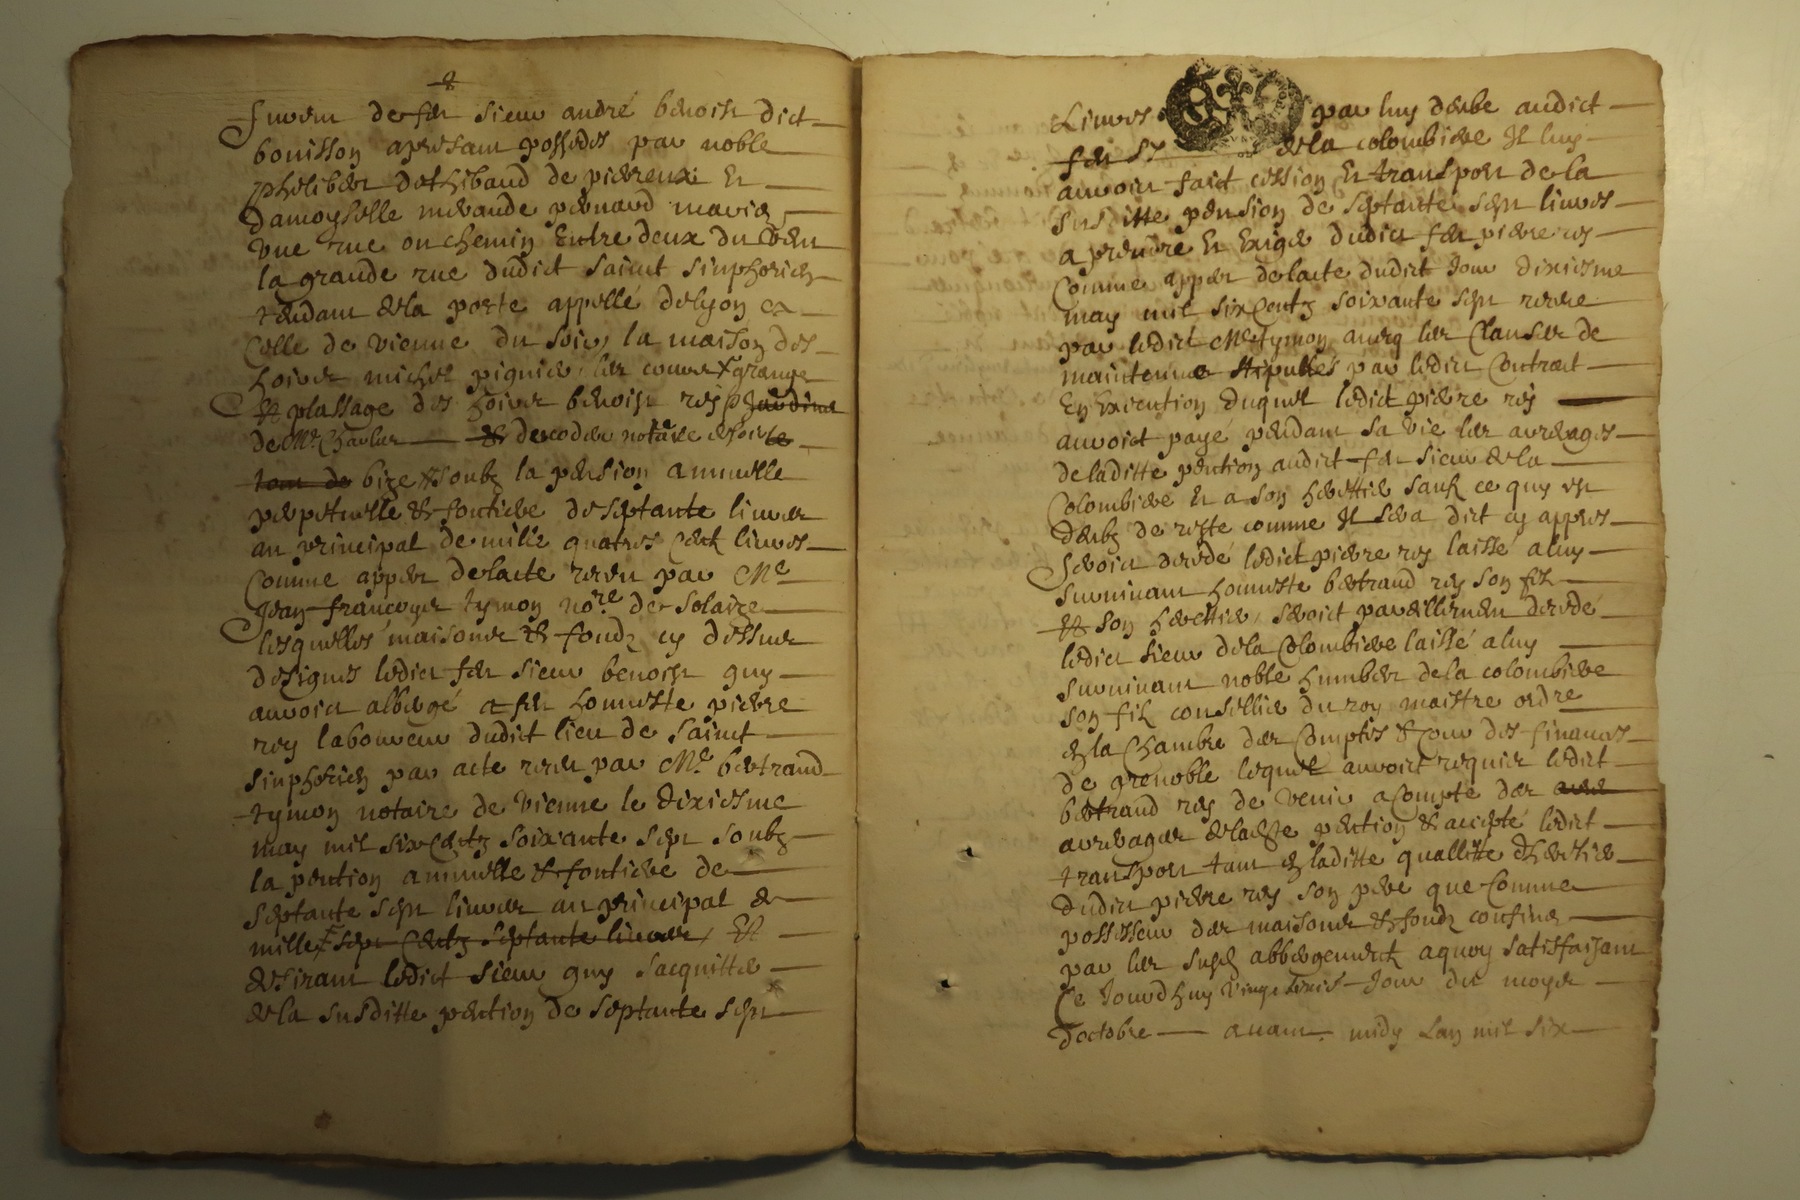 furent de feu sieur andré benoist dict
bouisson apresant possedes par noble
philibert dethibaud de pierreux et
damoyselle meraude pernard mariés
vne rue ou chemin Entre deux du vent
la grande rue dudict saint simphorien
tendant de la porte appellé de lyon a
Celle de vienne du soir la maison des
hoirs michel pignier les cours grange
et plassage des hoirs benoist rey
de Mr Charles decodee notaire
bize et soubz la pension annuelle
perpetuelle et fontiere de septante livres
au principal de mille quatres Centz livres
Comme appert de lacte receu par Me
Jean francoys tymon nore de Solaize
lesquelles maisons et fondz cy dessus
designes ledict feu sieur benoist guy
auroict albergé a feu honneste pierre
rey laboureur dudict lieu de saint
simphorien par acte receu par Me bertrand
tymon notaire de vienne le dixiesme
may mil six Centz soixante sept soubz
la pention annuelle et fontiere de
septante sept livres au principal de
mille sept Centz septante livres Et
desirant ledict sieur guy sacquitter
de la susditte pention de septante sept
Livres par luy deube audict
feu sr de la colombiere Il luy
auroict faict cession Et transport de la
susditte pension de septante sept livres
a prendre Et Exiger dudict feu pierre rey
Comme appert de lacte dudict Jour dixiesme
may mil six Centz soixante sept receu
par ledict Me tymon avecq les Clauses de
maintenue stipullés par ledict Contract
En Execution duquel ledict pierre rey
auroict payé pendant sa vie les arrerages
de laditte pention audict feu sieur de la
Colombiere Et a son heritier sauf ce quy est
deubz de reste comme Il sera dict cy appres
Seroict decedé ledict pierre rey laissé a luy
survivant honneste bertrand rey son filz
et son heritier, seroict pareillement decedé
ledict sieur de la Colombiere laissé a luy
survivant noble humbert de la colombiere
son filz conseillier du roy maistre ordre
en la Chambre des Comptes et Cour des finances
de grenoble lequel auroict requis ledict
bertrand rey de venir a Compte des
arrerages de ladte pention et accepté ledict
transport tant en laditte quallitte dheritier
dudict pierre rey son pere que Comme
possesseur des maisons et fondz confinés
par les susd abbergementz a quoy satisfaisant
Ce Jourdhuy vingt trois Jour du moys
doctobre avant midy Lan mil six